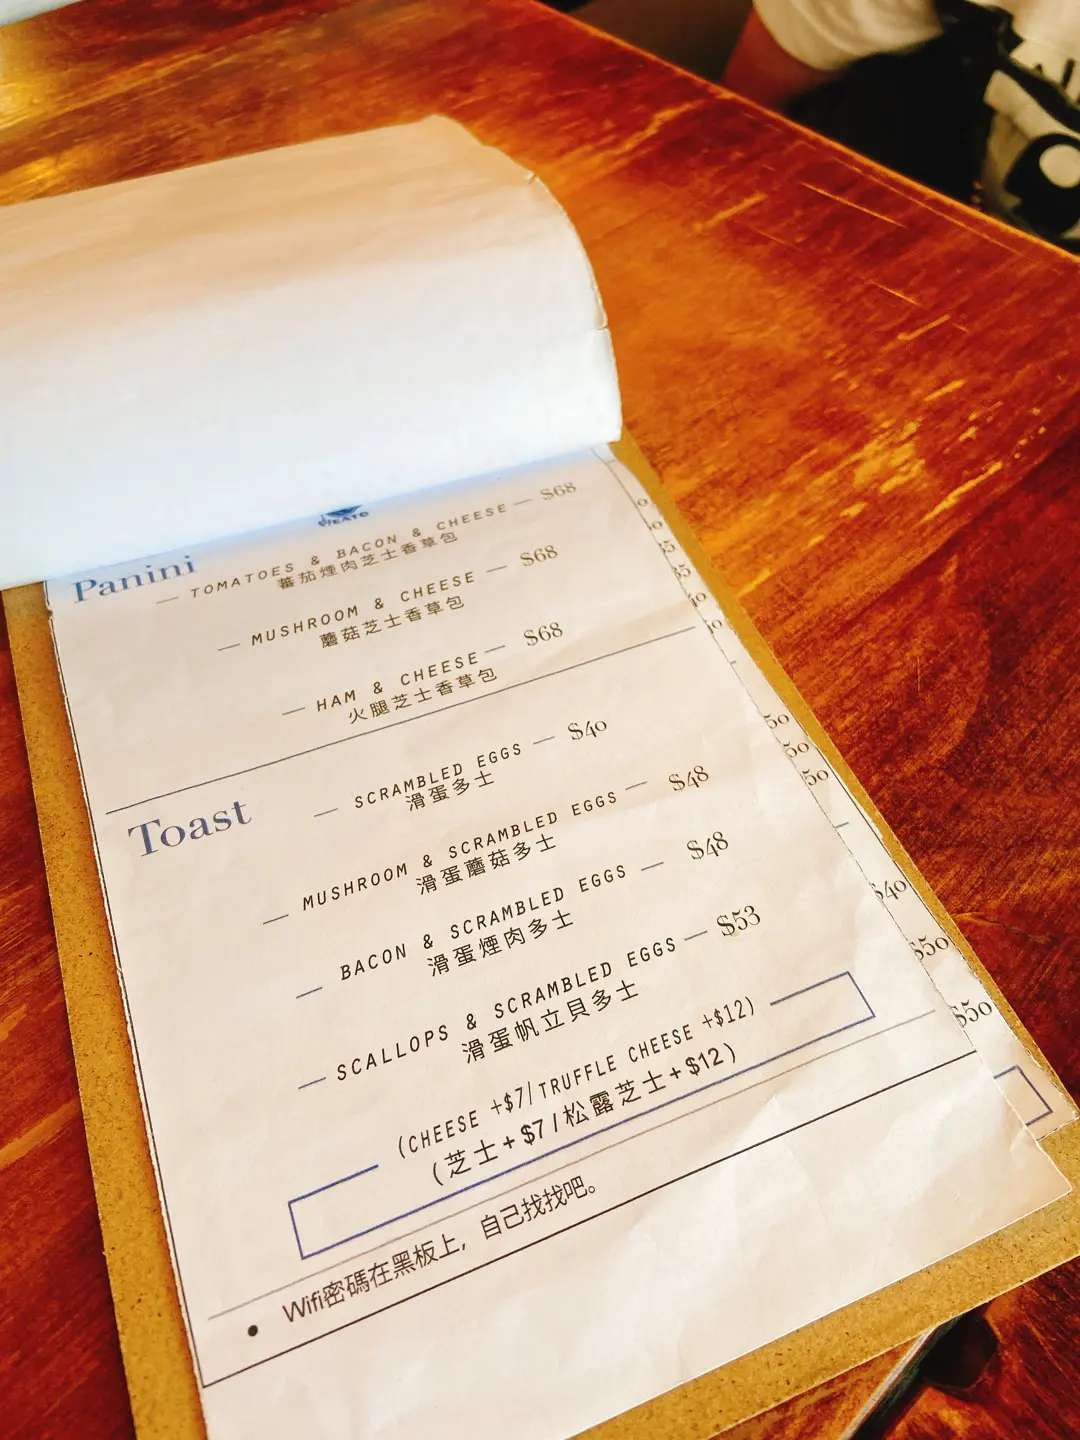 Panini
— TOMATOES & BACON & CHEESE — $68
蕃茄煙肉芝士香草包
— MUSHROOM & CHEESE — $68
蘑菇芝士香草包
— HAM & CHEESE — $68
火腿芝士香草包
Toast
— SCRAMBLED EGGS — $40
滑蛋多士
— MUSHROOM & SCRAMBLED EGGS — $48
滑蛋蘑菇多士
— BACON & SCRAMBLED EGGS — $48
滑蛋煙肉多士
— SCALLOPS & SCRAMBLED EGGS — $53
滑蛋帆立貝多士
(CHEESE +$7/TRUFFLE CHEESE +$12)
(芝士+$7/松露芝士+$12)
• Wifi密碼在黑板上, 自己找找吧。
50
50
50
$40
$50
$50